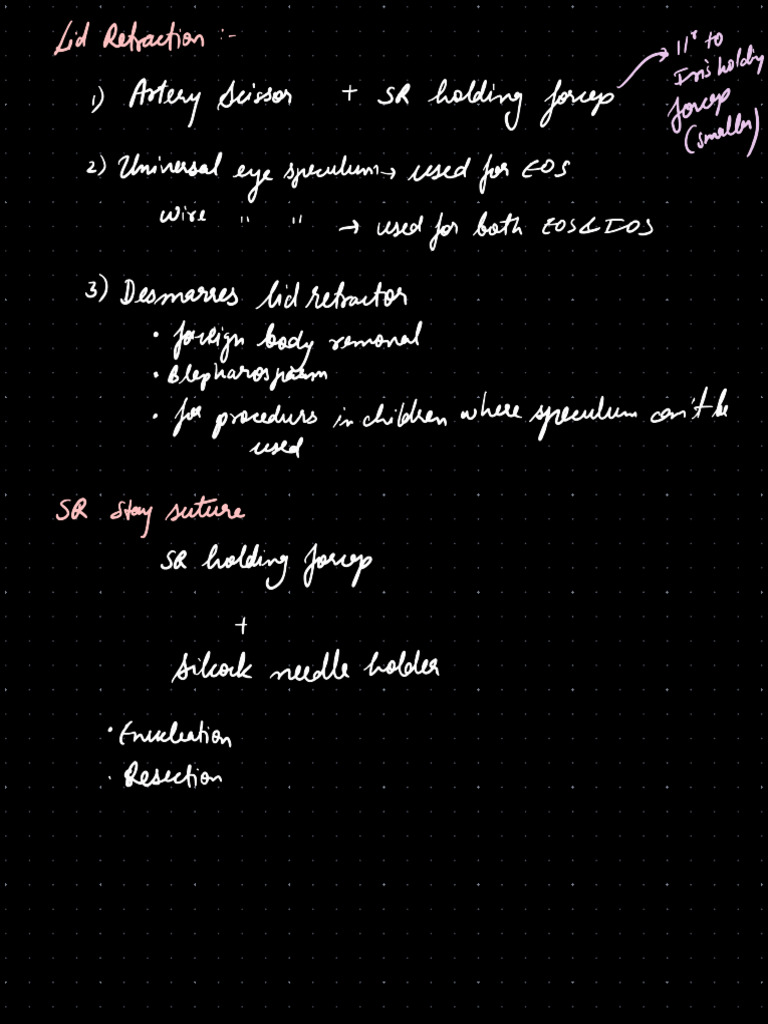 Lid Retraction :-
1) Artery Scissor + SR holding forcep → 11r to
Iris holding
forcep
(smaller)
2) Universal eye speculum → used for EOS
Wire " " → used for both EOS & IOS
3) Desmarres lid retractor
• foreign body removal
• Blepharospasm
• for procedurs in children where speculum can't be
used
SR Stay suture
SR holding forcep
+
Silcock needle holder
• Enucleation
• Resection